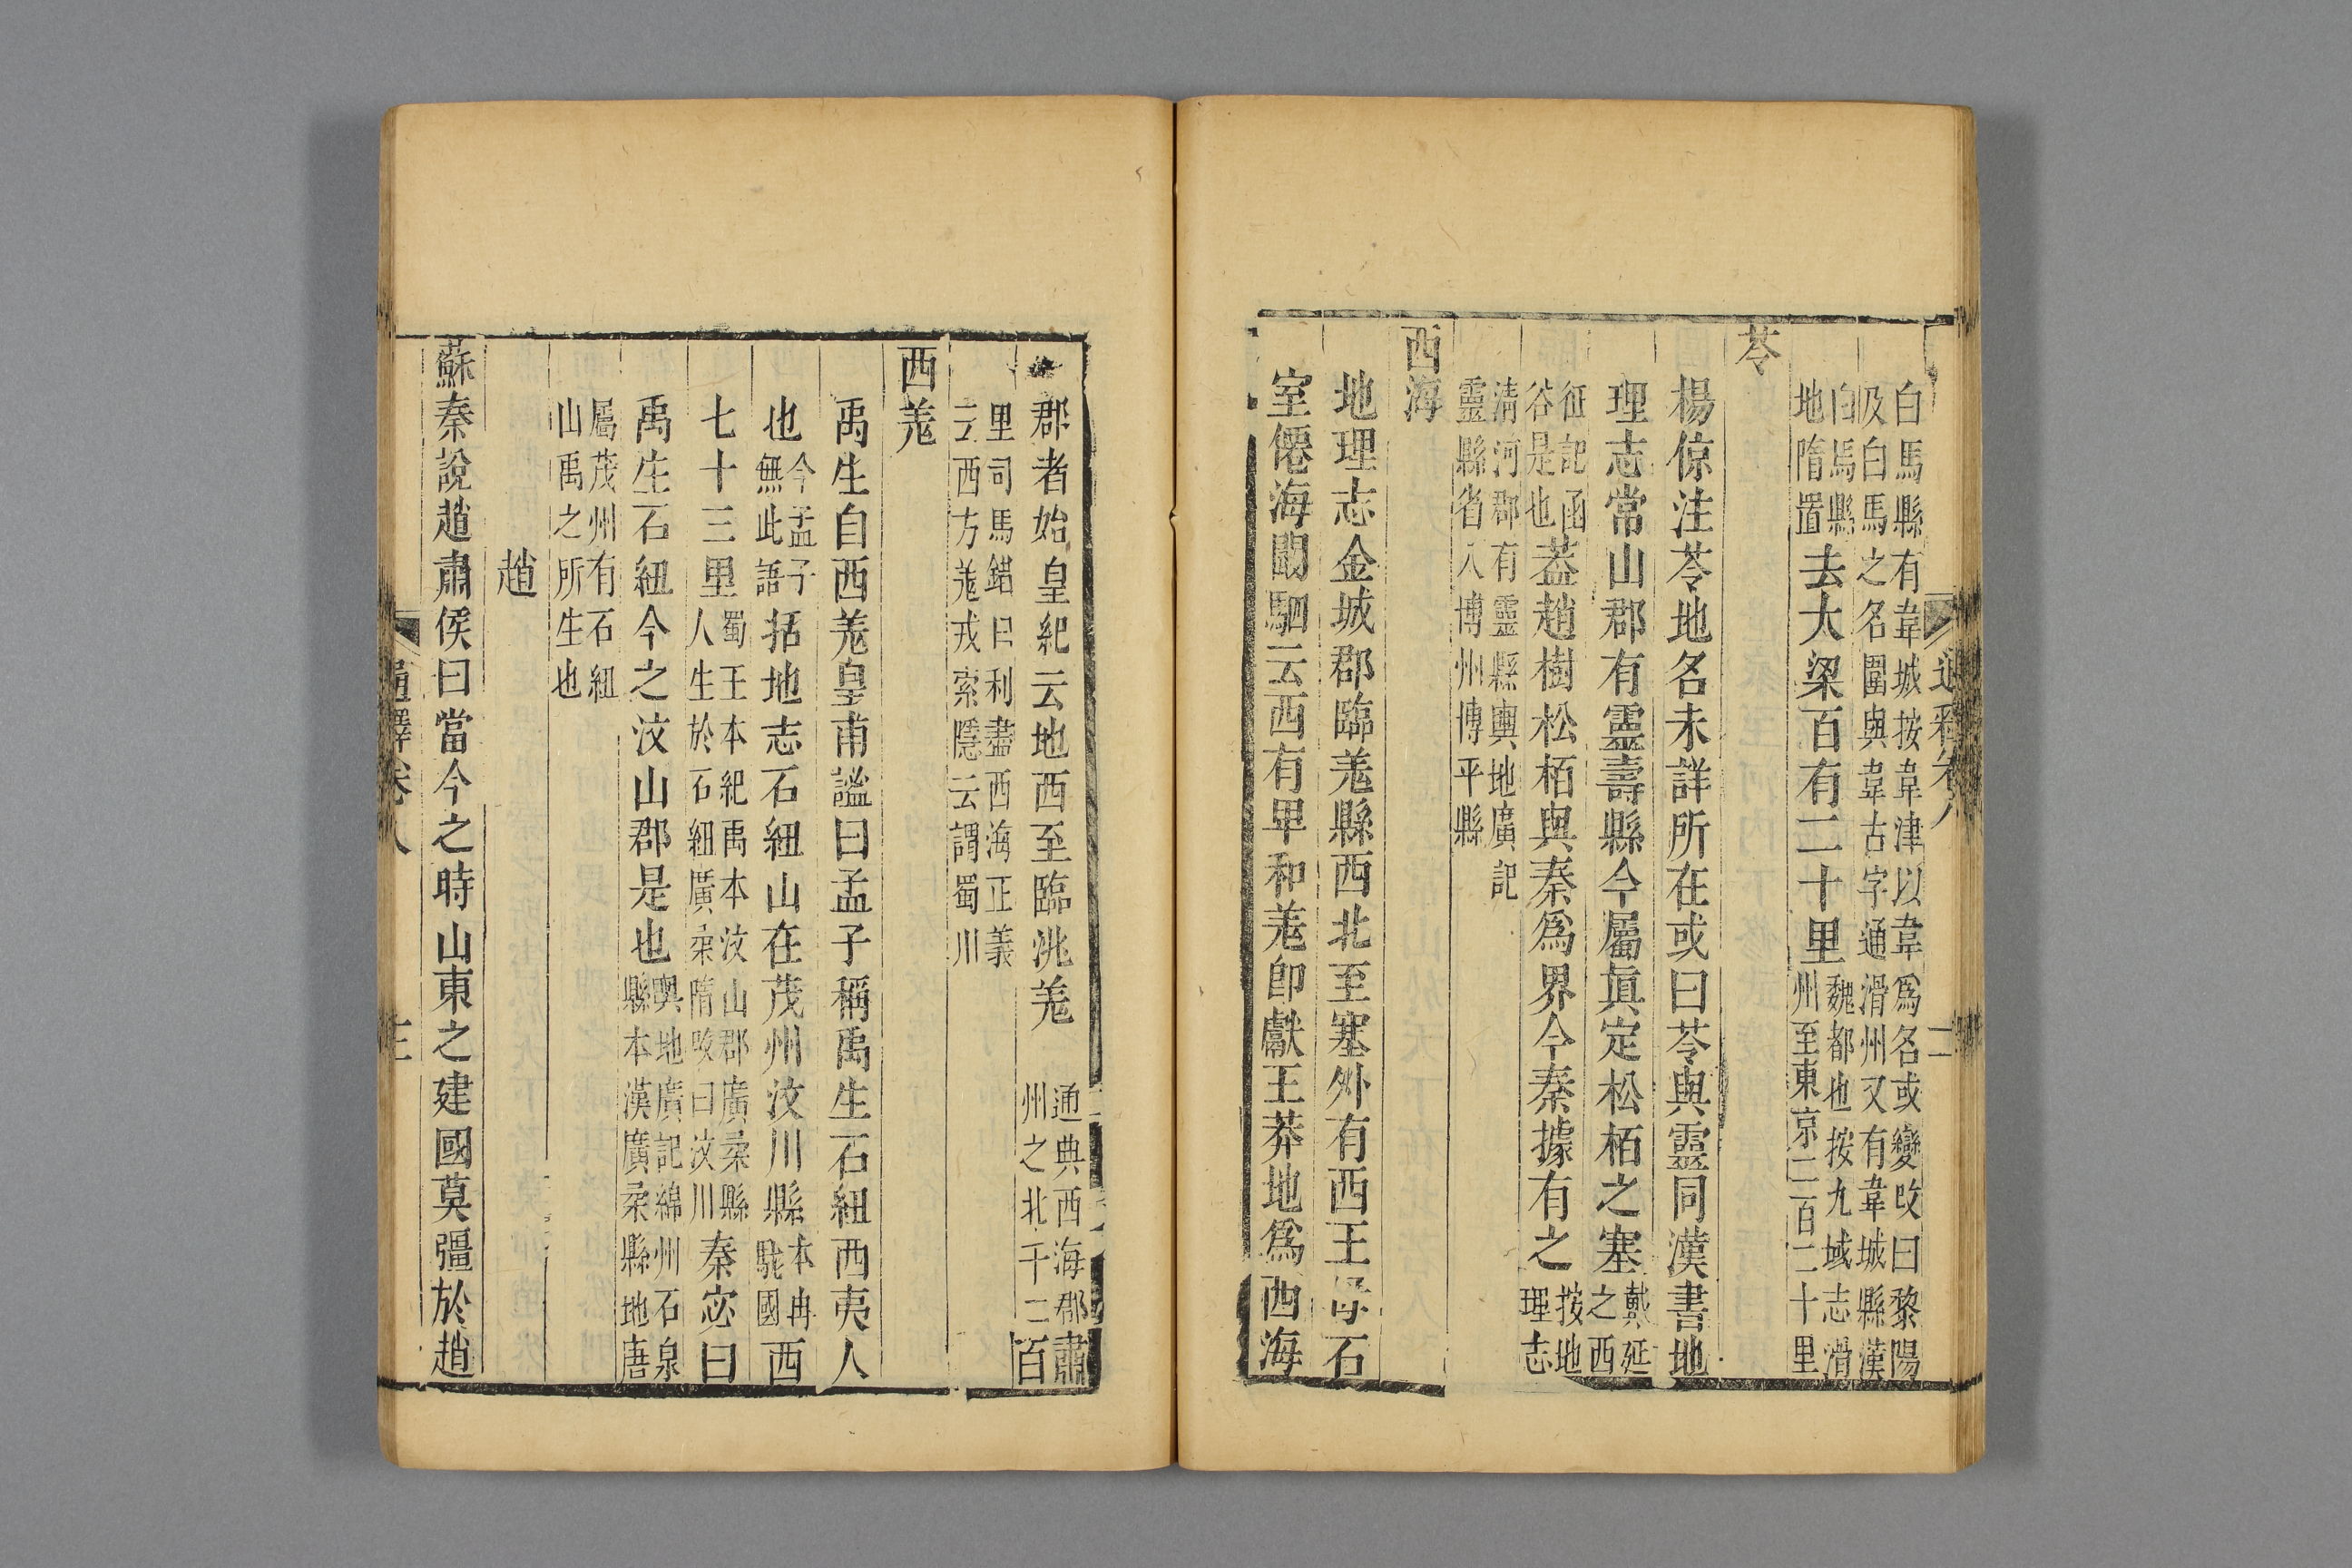 通釋卷八
二
白馬縣有韋城按韋津以韋爲名或變改曰黎陽
及白馬之名圍與韋古字通滑州又有韋城縣漢
白馬縣
地隋置
去大梁百有二十里
魏都也按九域志滑
州至東京二百二十里
苓
楊倞注苓地名未詳所在或曰苓與靈同漢書地
理志常山郡有靈壽縣今屬眞定松栢之塞
戴延
之西
征記函
谷是也
葢趙樹松栢與秦爲界今秦據有之
按地
理志
清河郡有靈縣輿地廣記
靈縣省入博州博平縣
西海
地理志金城郡臨羗縣西北至塞外有西王母石
室僊海闞駰云西有卑和羗卽獻王莽地爲西海
郡者始皇紀云地西至臨洮羗
通典西海郡肅
州之北千二百
里司馬錯曰利盡西海正義
云西方羗戎索隱云謂蜀川
西羗
禹生自西羗皇甫謐曰孟子稱禹生石紐西夷人
也
今孟子
無此語
括地志石紐山在茂州汶川縣
本冉
駹國
西
七十三里
蜀王本紀禹本汶山郡廣柔縣
人生於石紐廣柔隋改曰汶川
秦宓曰
禹生石紐今之汶山郡是也
輿地廣記綿州石泉
縣本漢廣柔縣地唐
屬茂州有石紐
山禹之所生也
趙
蘇秦說趙肅侯曰當今之時山東之建國莫彊於趙
通釋卷八
三